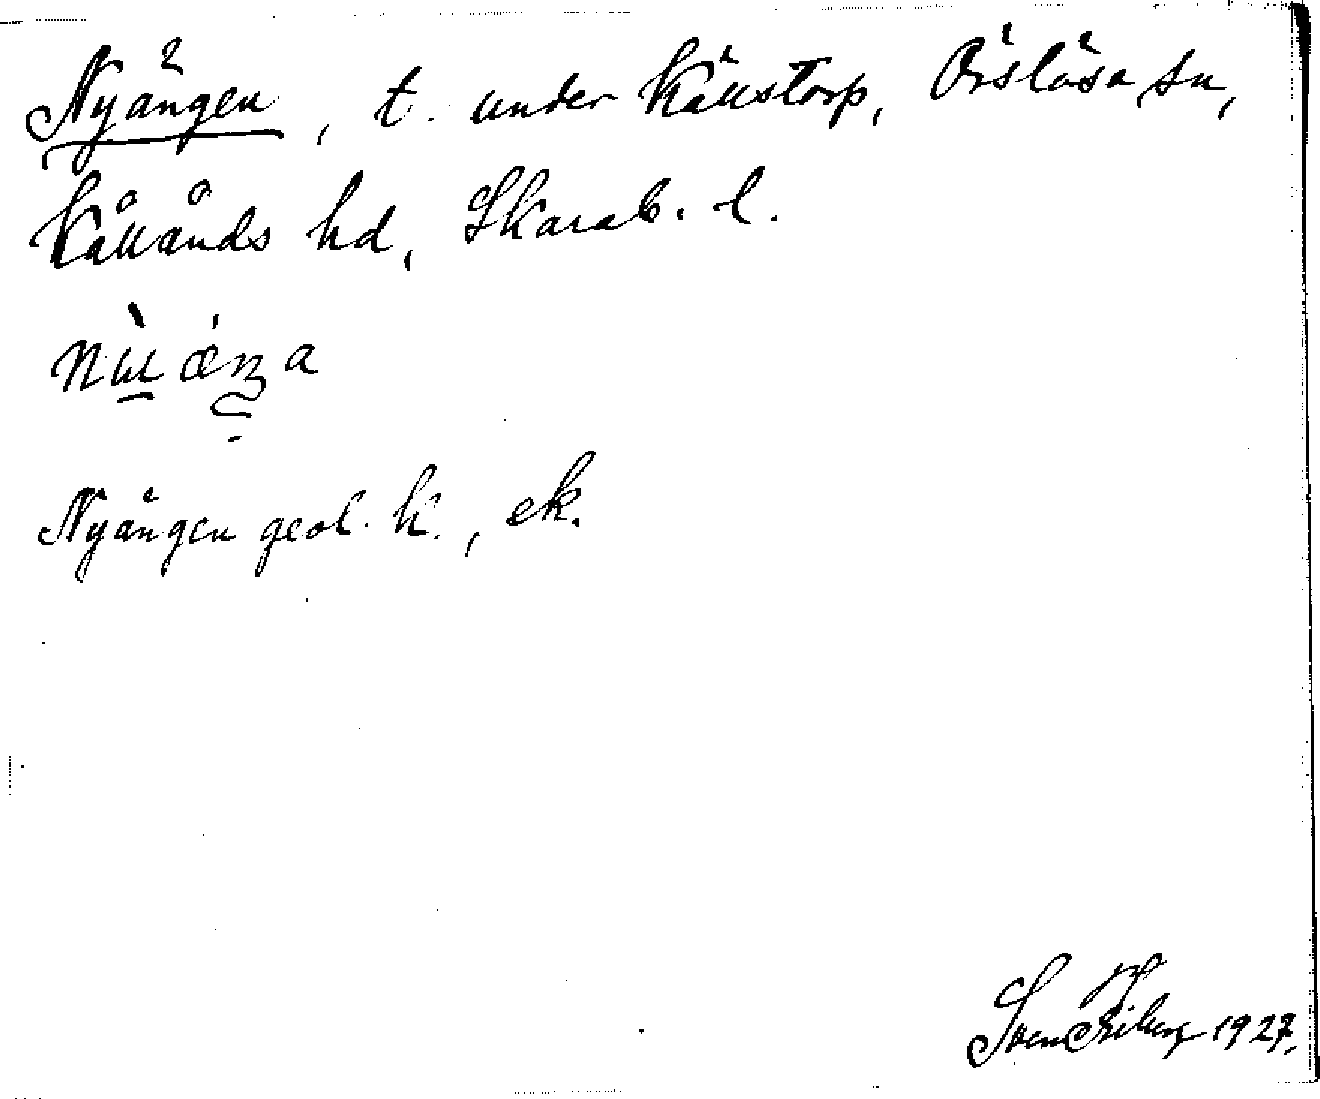 Nyängen, t. under Källstorp, Örslösa sn,
Kållands hd, Skarab. l.
Nyängen geol. k., ek.
Sven 1927.